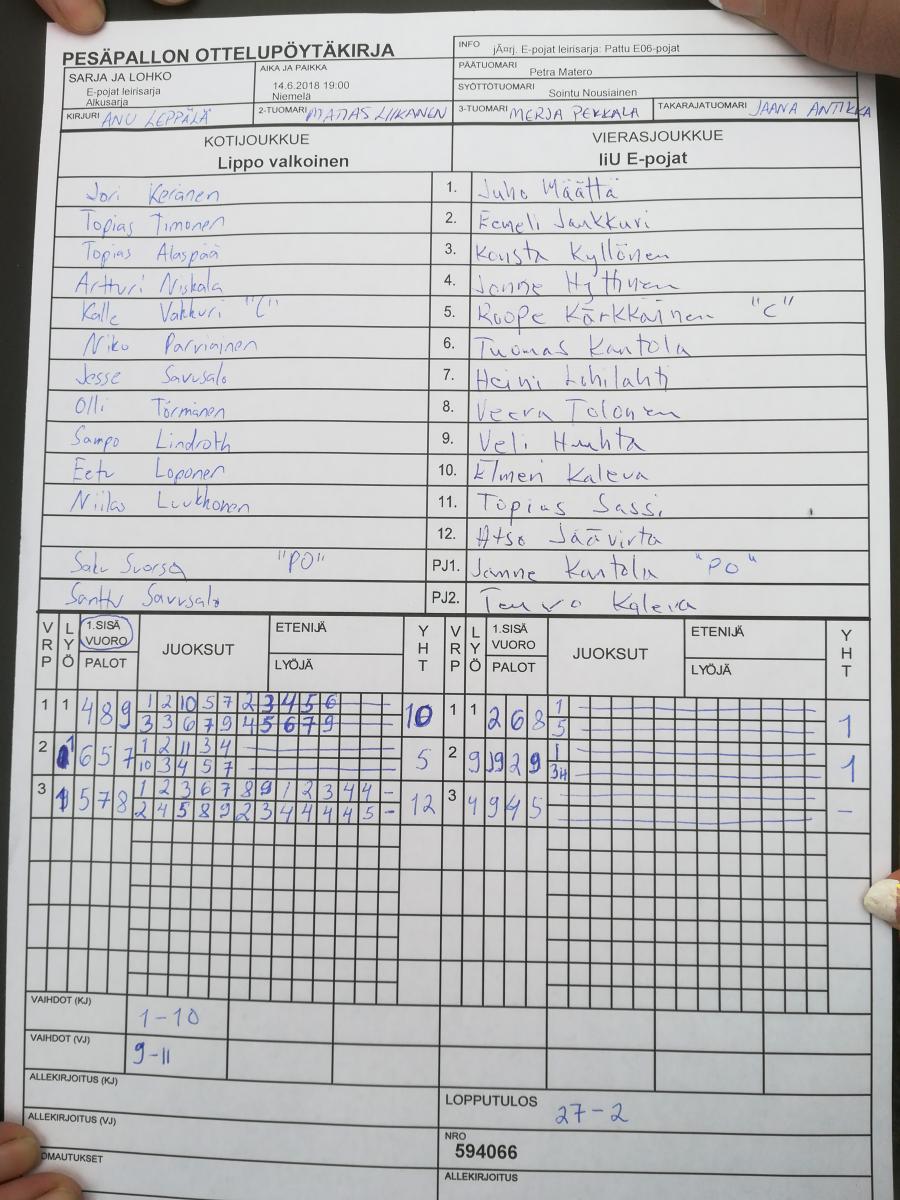 PESÄPALLON OTTELUPÖYTÄKIRJA
INFO jĤrj. E-pojat leirisarja: Pattu E06-pojat
SARJA JA LOHKO
E-pojat leirisarja
Alkusarja
AIKA JA PAIKKA
14.6.2018 19:00
Niemelä
PÄÄTUOMARI Petra Matero
SYÖTTÖTUOMARI Sointu Nousiainen
KIRJURI ANU LEPPÄLÄ 2-TUOMARI MATIAS LIIKANEN 3-TUOMARI MERJA PEKKALA TAKARAJATUOMARI JAANA ANTIKKA
KOTIJOUKKUE VIERASJOUKKUE
Lippo valkoinen IiU E-pojat
Jori Keränen 1. Juho Määttä
Topias Timonen 2. Eemeli Jankkuri
Topias Alaspää 3. Konsta Kyllönen
Artturi Niskala 4. Janne Hyttinen
Kalle Vakkuri "C" 5. Roope Kärkkäinen "C"
Niko Parviainen 6. Tuomas Kantola
Jesse Savusalo 7. Heini Lohilahti
Olli Törmänen 8. Veera Tolonen
Sampo Lindroth 9. Veli Huuhta
Eetu Loponen 10. Elmeri Kaleva
Niilas Luukkonen 11. Topias Sassi
12. Atso Jäävirta
Saku Suorsa "PO" PJ1. Janne Kantola "PO"
Santtu Savusalo PJ2. Teuvo Kaleva
VRP LYÖ 1.SISÄ VUORO PALOT JUOKSUT ETENIJÄ LYÖJÄ YHT VRP LYÖ 1.SISÄ VUORO PALOT JUOKSUT ETENIJÄ LYÖJÄ YHT
1 1 4 8 9 1 2 10 5 7 2 3 4 5 6 10 1 1 2 6 8 1 1
3 3 6 7 9 4 5 6 7 9 5
2 1 6 5 7 1 2 11 3 4 5 2 9 9 2 9 1 1
10 3 4 5 7 34
3 1 5 7 8 1 2 3 6 7 8 9 1 2 3 4 4 - 12 3 4 9 4 5 -
2 4 5 8 9 2 3 4 4 4 4 5 -
VAIHDOT (KJ) 1-10
VAIHDOT (VJ) 9-11
ALLEKIRJOITUS (KJ)
LOPPUTULOS 27-2
ALLEKIRJOITUS (VJ)
NRO
594066
OMAUTUKSET
ALLEKIRJOITUS